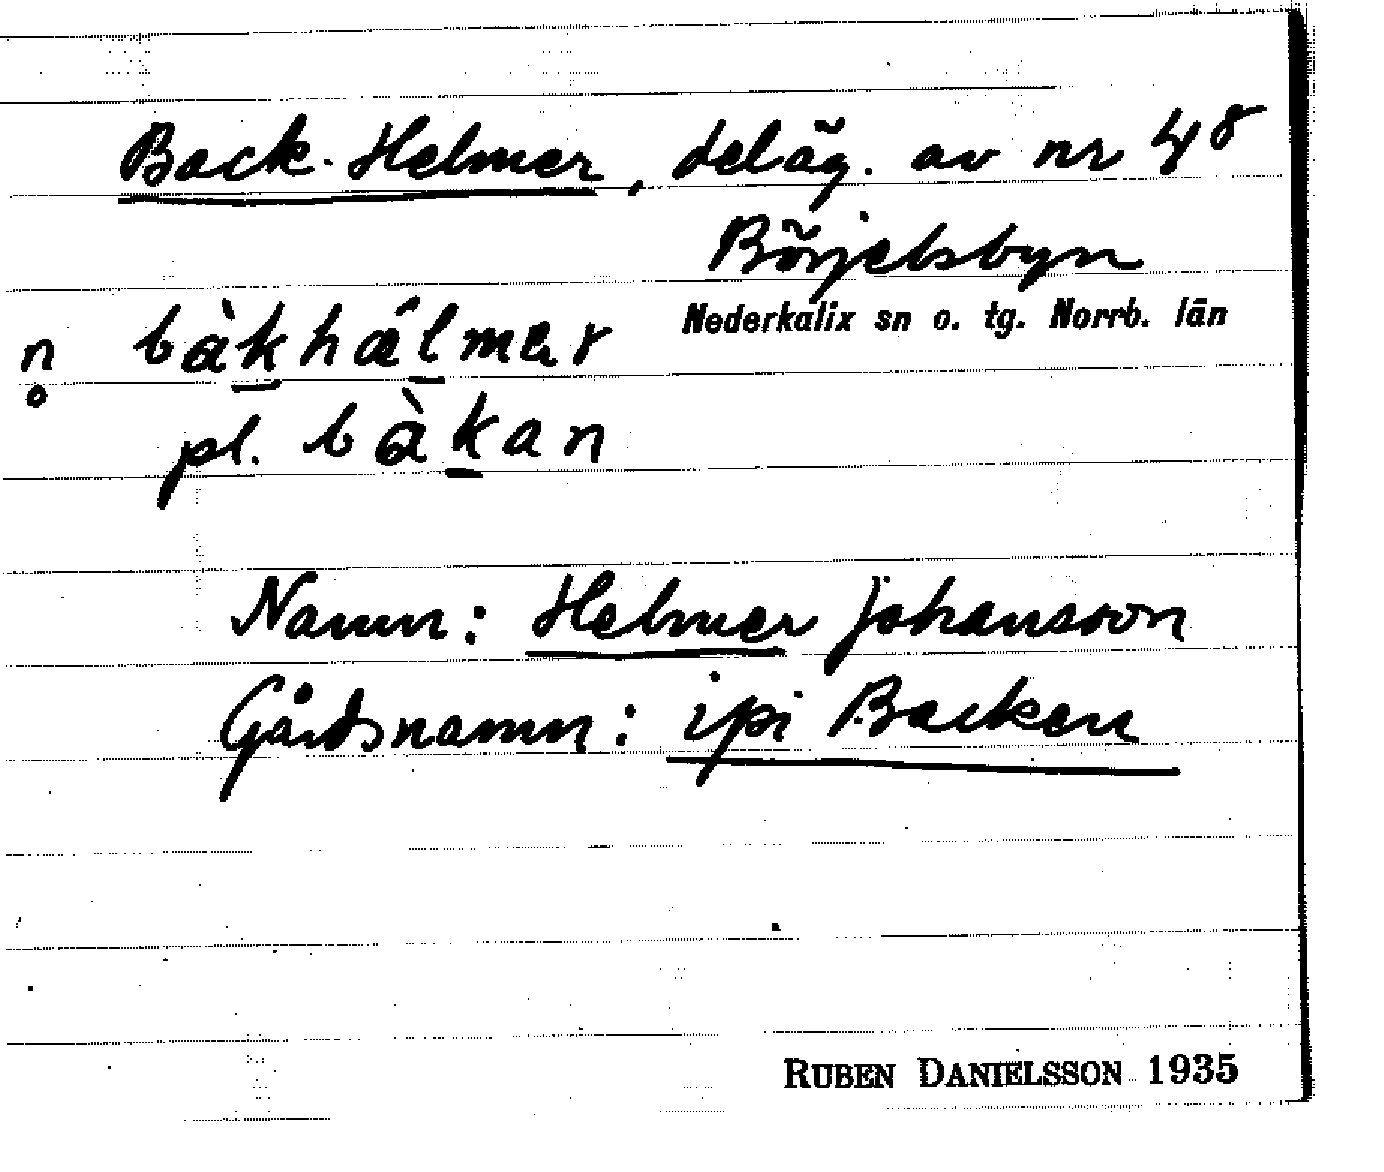 Back-Helmer, deläg. av nr 48
Börjelsbyn
Nederkalix sn o. tg. Norrb. län
n̥ bàkhǽlmər
pl. bàkan
Namn: Helmer Johansson
Gårdsnamn: ipi Backen
RUBEN DANIELSSON 1935